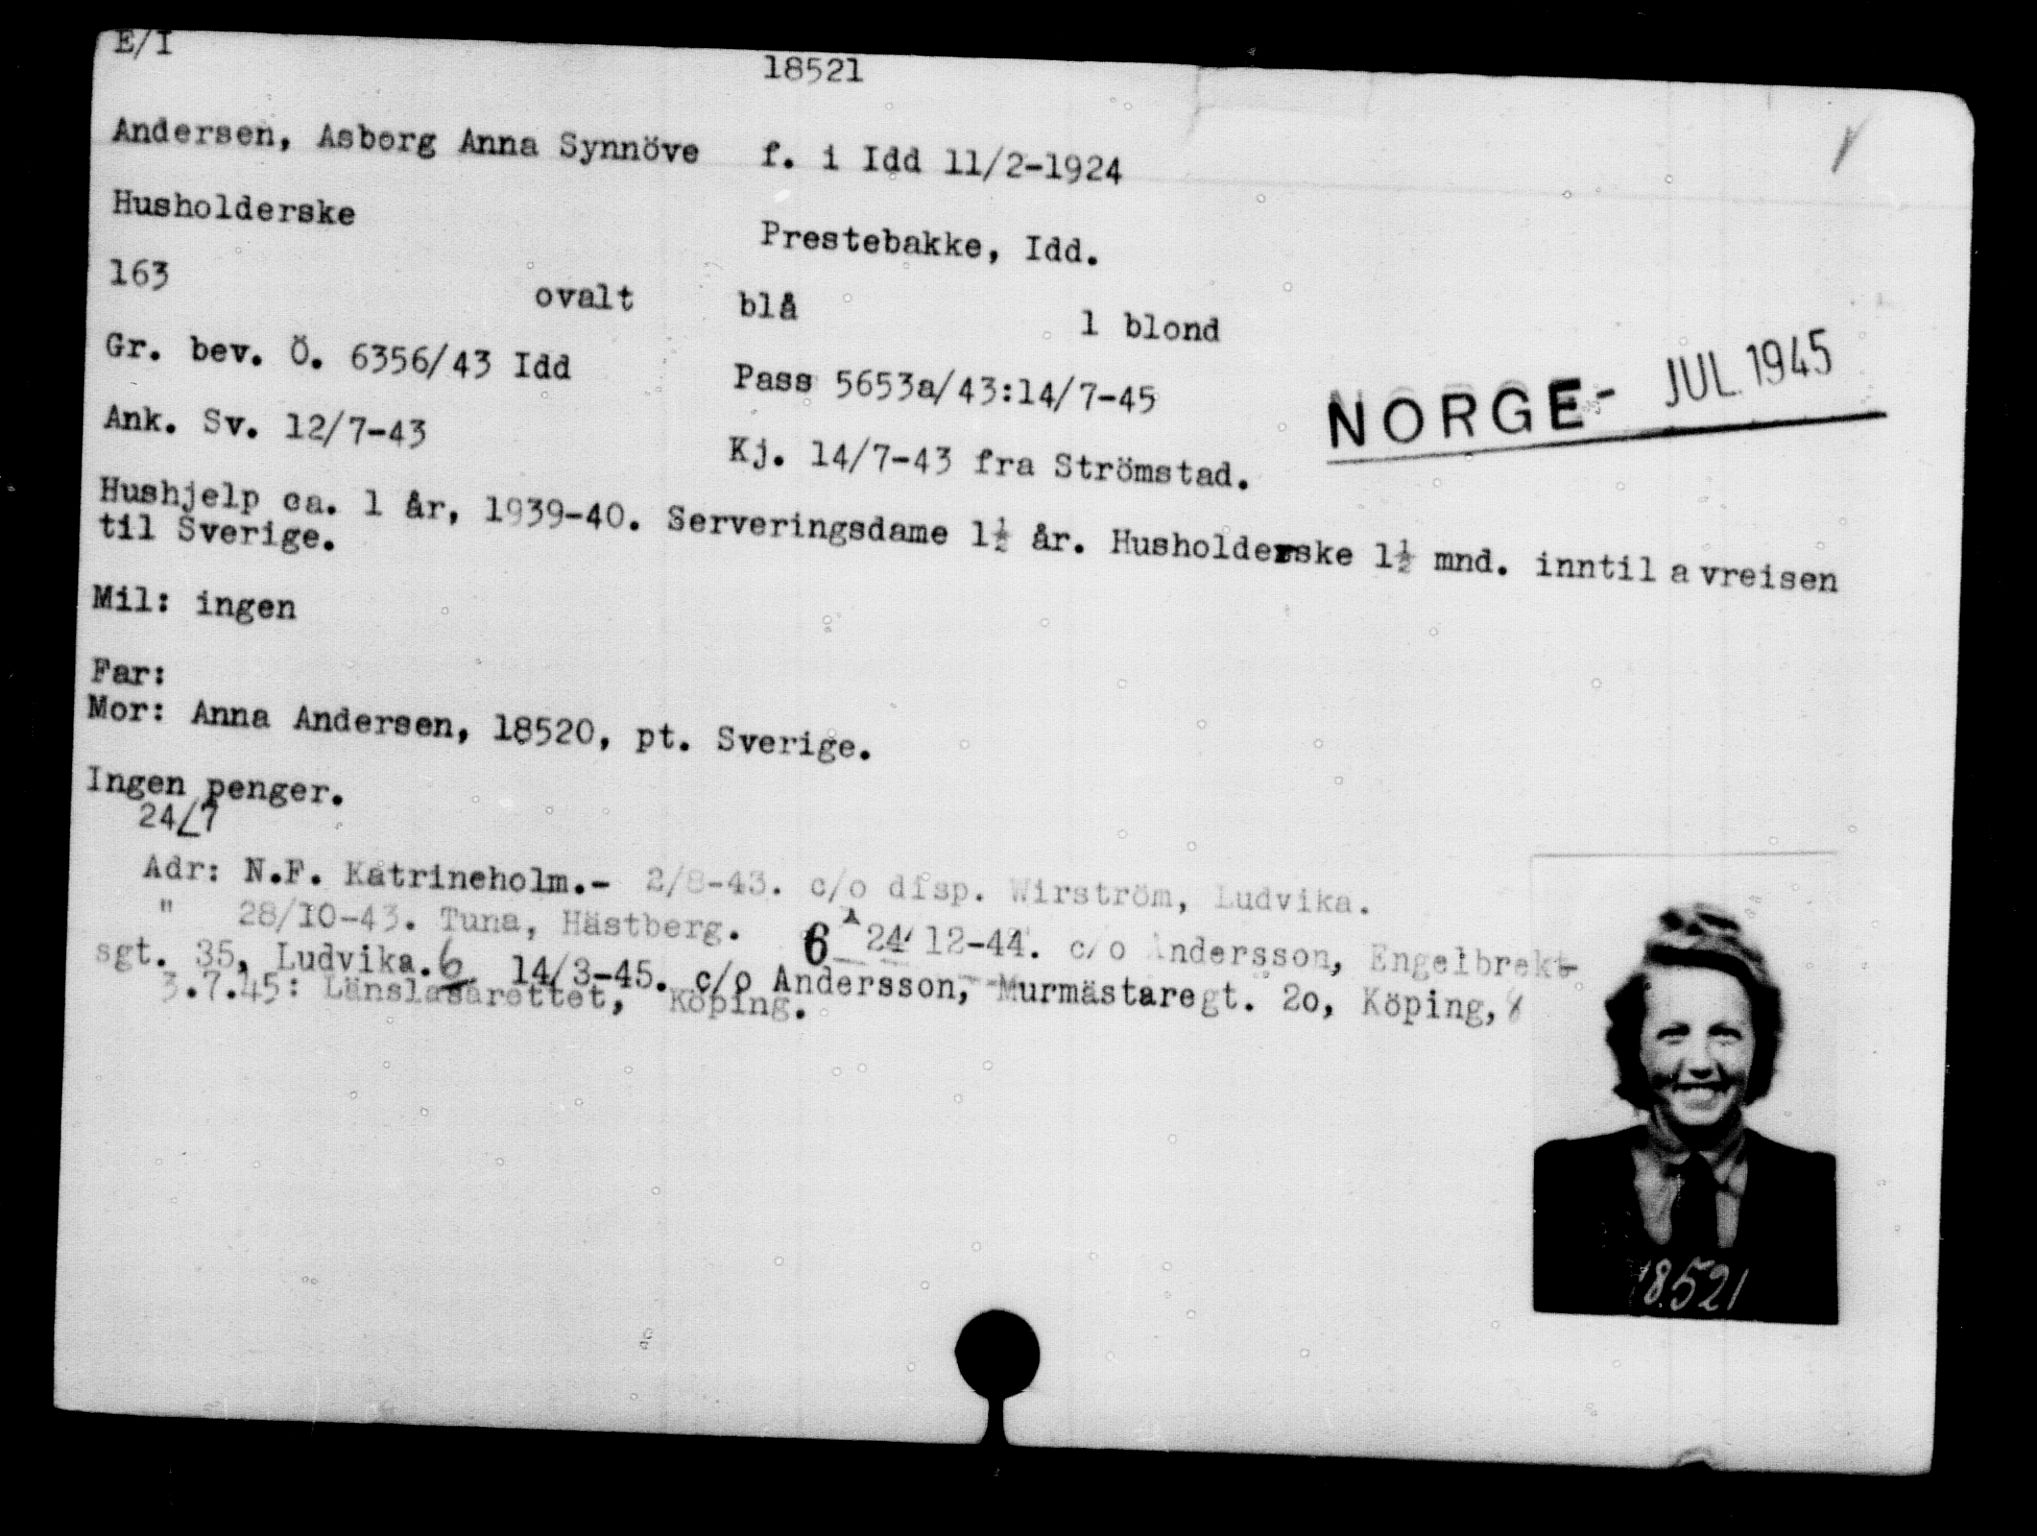 E/I
18521
Andersen, Asborg Anna Synnöve f. i Idd 11/2-1924
Husholderske Prestebakke, Idd.
163 ovalt blå l blond
Gr. bev. Ö. 6356/43 Idd Pass 5653a/43:14/7-45
NORGE- JUL 1945
Ank. Sv. 12/7-43 Kj. 14/7-43 fra Strömstad.
Hushjelp ca. 1 år, 1939-40. Serveringsdame 1½ år. Husholderske 1½ mnd. inntil avreisen
til Sverige.
Mil: ingen
Far:
Mor: Anna Andersen, 18520, pt. Sverige.
Ingen penger.
24/7
Adr: N.F. Katrineholm.- 2/8-43. c/o disp. Wirström, Ludvika.
" 28/10-43. Tuna, Hästberg. 6 24/12-44. c/o Andersson, Engelbrekt-
sgt. 35, Ludvika. 6 14/3-45. c/o Andersson, Murmästaregt. 2o, Köping,
3.7.45: Länslasarettet, Köping.
18521